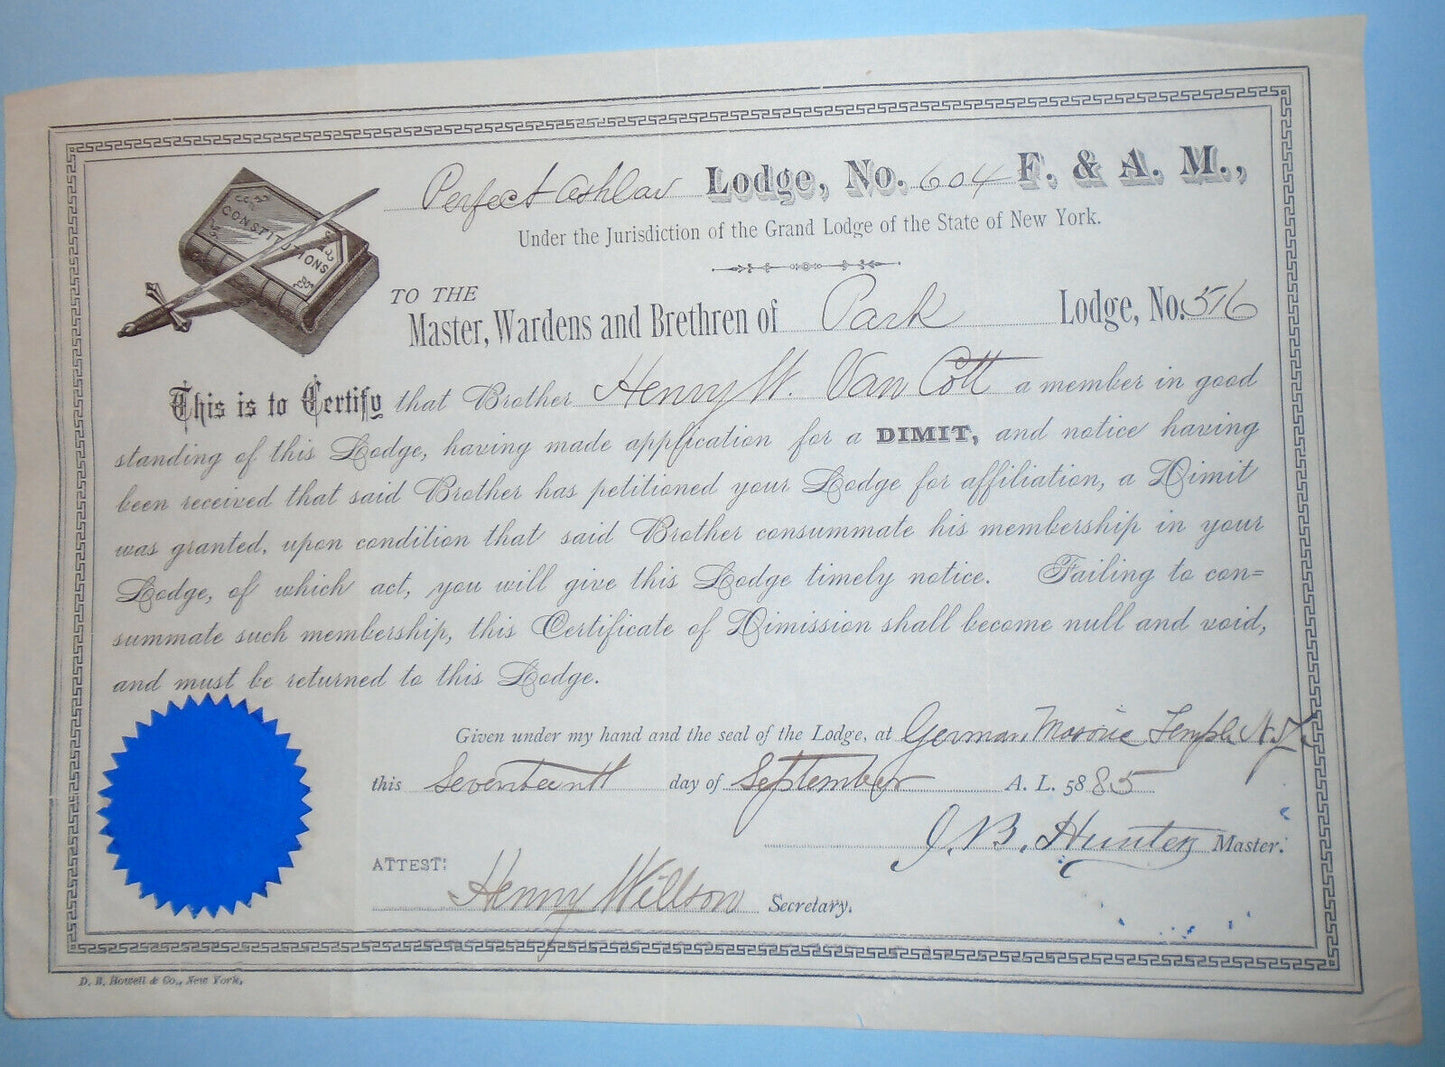 Perfect Ashlar Lodge, No. 604 F. & A. M.,
Under the Jurisdiction of the Grand Lodge of the State of New York.
CONSTITUTIONS
TO THE
Master, Wardens and Brethren of Park Lodge, No. 516
This is to Certify that Brother Henry W. Van Cott a member in good
standing of this Lodge, having made application for a DIMIT, and notice having
been received that said Brother has petitioned your Lodge for affiliation, a Dimit
was granted, upon condition that said Brother consummate his membership in your
Lodge, of which act, you will give this Lodge timely notice. Failing to con=
summate such membership, this Certificate of Dimission shall become null and void,
and must be returned to this Lodge.
Given under my hand and the seal of the Lodge, at German Masonic Temple N.Y.
this Seventeenth day of September A. L. 5885
J. B. Hunter Master.
ATTEST:
Henry Willson Secretary.
D. B. Howell & Co., New York,